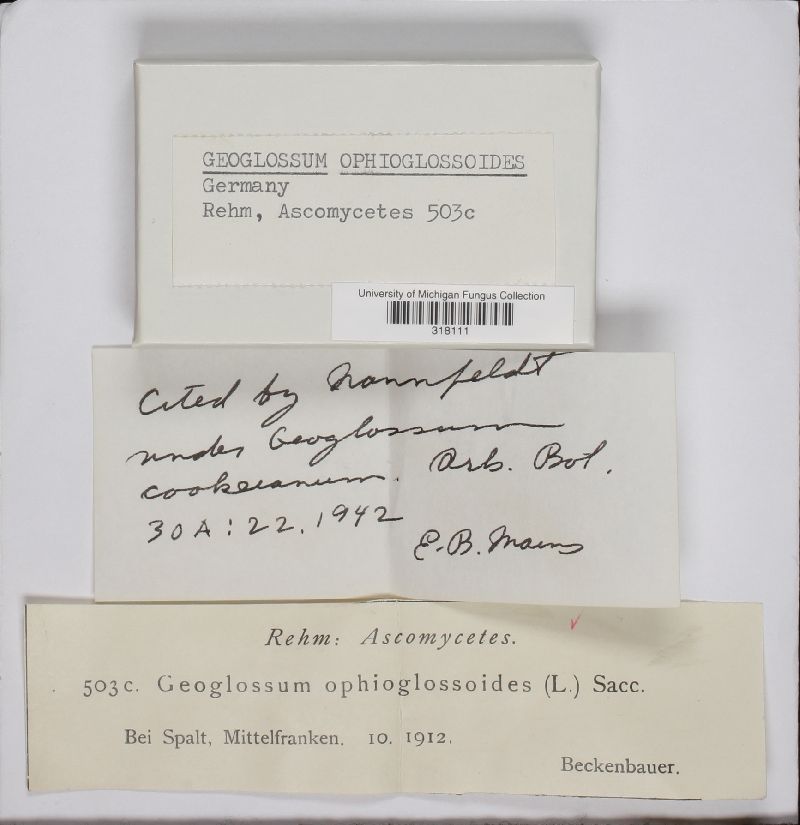 GEOGLOSSUM OPHIOGLOSSOIDES
Germany
Rehm, Ascomycetes 503c
University of Michigan Fungus Collection
318111
Cited by Nannfeldt
under Geoglossum
cookeianum. Arb. Bot.
30A:22.1942
E.B. Mains
Rehm: Ascomycetes.
503c. Geoglossum ophioglossoides (L.) Sacc.
Bei Spalt, Mittelfranken. 10. 1912.
Beckenbauer.